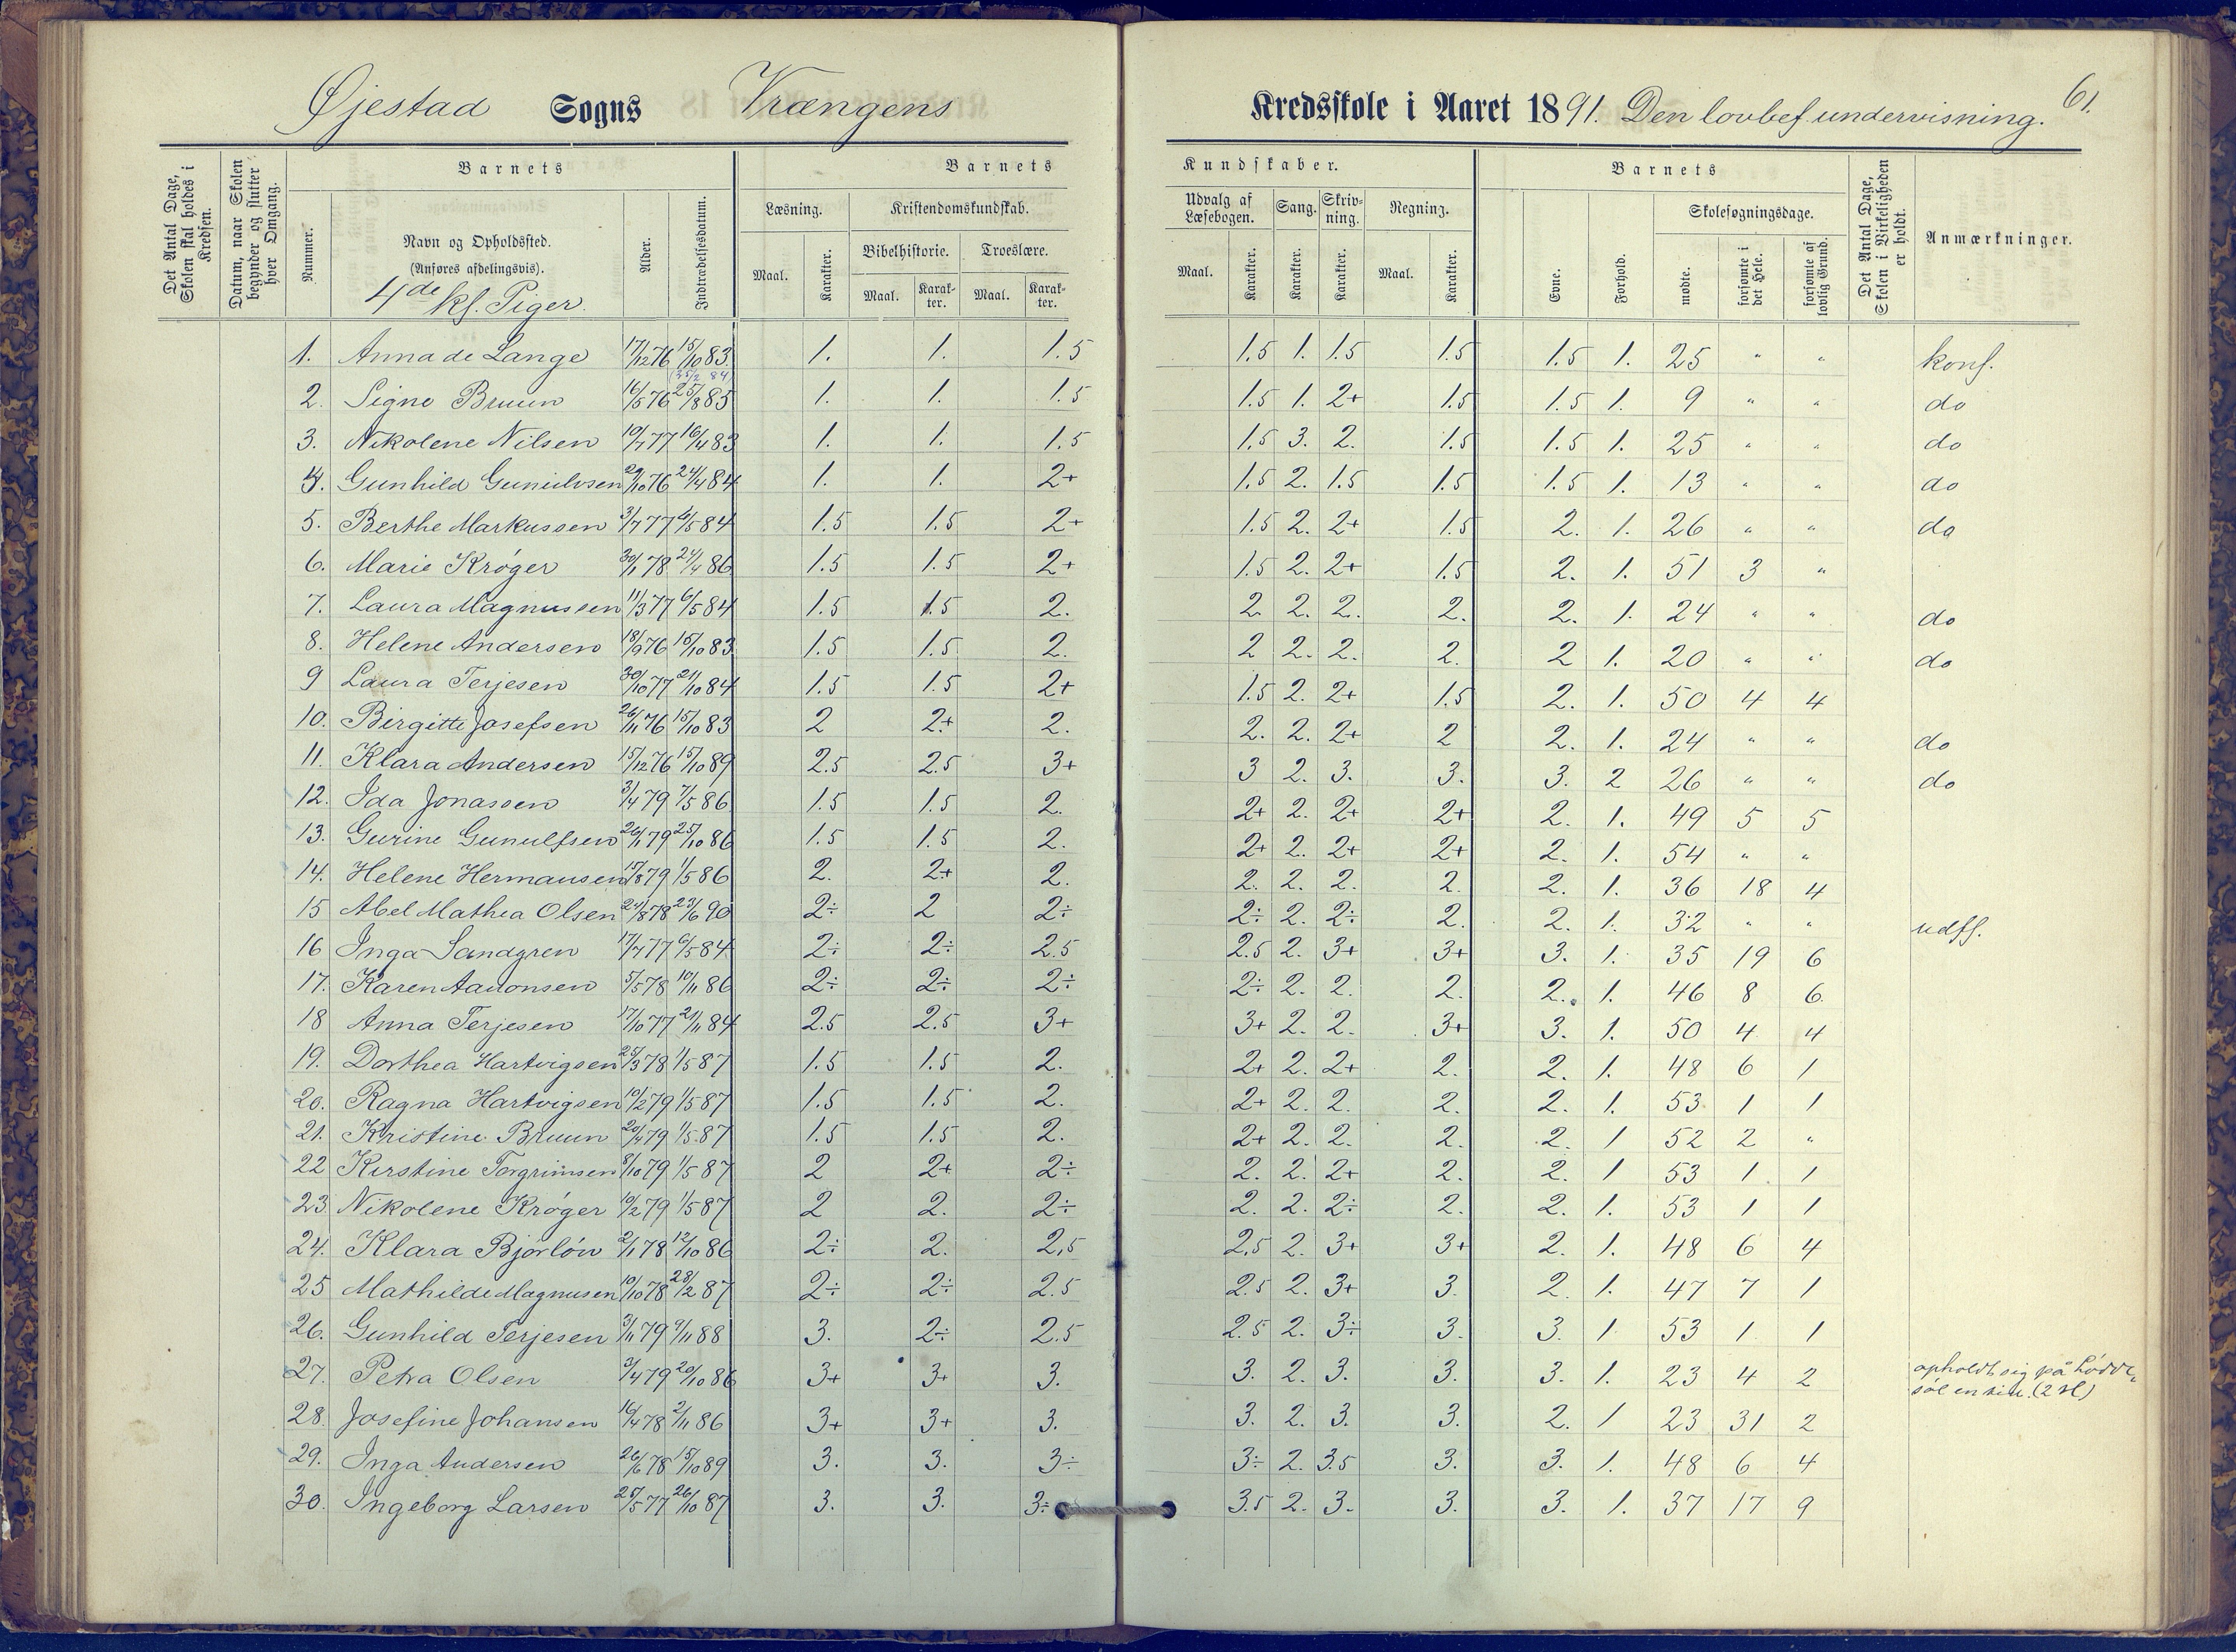 Øjestad Sogns Vrængens Kredsskole i Aaret 1891. Den lovbef. undervisning. 61.
Det Antal Dage, Skolen skal holdes i Kredsen.
Datum, naar Skolen begynder og slutter hver Omgang.
Barnets
Nummer.
Navn og Opholdssted.
(Anføres afdelingsvis).
4de kl. Piger.
Alder.
Indtrædelsesdatum.
Barnets Kundskaber.
Læsning. Kristendomskundskab. Udvalg af Læsebogen. Sang. Skrivning. Regning.
Bibelhistorie. Troeslære.
Maal. Karakter. Maal. Karakter. Maal. Karakter. Maal. Karakter. Karakter. Karakter. Maal. Karakter.
Barnets
Evne. Forhold. Skolesøgningsdage.
mødte. forsømte i det Hele. forsømte af lovlig Grund.
Det Antal Dage, Skolen i Virkeligheden er holdt.
Anmærkninger.
1. Anna de Lange 17/12 76 15/10 83. 1. 1. 1.5 1.5 1. 1.5 1.5 1.5 1. 25 " " konf.
2. Signe Bruun 16/5 76 25/8 85 1. 1. 1.5 1.5 1. 2+ 1.5 1.5 1. 9 " " do
3. Nikolene Nilsen 10/7 77 16/4 83 1. 1. 1.5 1.5 3. 2. 1.5 1.5 1. 25 " " do
4. Gunhild Gunulvsen 29/10 76 24/4 84 1. 1. 2+ 1.5 2. 1.5 1.5 1.5 1. 13 " " do
5. Berthe Markussen 3/7 77 6/5 84 1.5 1.5 2+ 1.5 2. 2+ 1.5 2. 1. 26 " " do
6. Marie Krøger 30/1 78 24/4 86 1.5 1.5 2+ 1.5 2. 2+ 1.5 2. 1. 51 3 "
7. Laura Magnussen 11/3 77 6/5 84 1.5 1.5 2. 2 2. 2. 2. 2. 1. 24 " " do
8. Helene Andersen 18/9 76 15/10 83 1.5 1.5 2. 2 2. 2. 2. 2 1. 20 " " do
9 Laura Terjesen 30/10 77 21/10 84 1.5 1.5 2+ 1.5 2. 2+ 1.5 2. 1. 50 4 4
10. Birgitte Josefsen 26/11 76 15/10 83 2 2+ 2. 2. 2. 2+ 2 2. 1. 24 " " do
11. Klara Andersen 15/12 76 15/10 89 2.5 2.5 3+ 3 2. 3. 3. 3. 2 26 " " do
12. Ida Jonassen 3/4 79 7/5 86 1.5 1.5 2. 2+ 2. 2+ 2+ 2. 1. 49 5 5
13. Gurine Gunulfsen 26/1 79 25/10 86 1.5 1.5 2. 2+ 2. 2+ 2+ 2. 1. 54 " "
14. Helene Hermansen 15/8 79 1/5 86 2. 2+ 2. 2. 2. 2. 2. 2. 1. 36 18 4
15 Abel Mathea Olsen 24/8 78 23/6 90 2÷ 2 2÷ 2÷ 2. 2÷ 2. 2. 1. 32 " " udfl.
16 Inga Sandgren 17/7 77 6/5 84 2÷ 2÷ 2.5 2.5 2. 3+ 3+ 3. 1. 35 19 6
17. Karen Aanonsen 5/5 78 10/11 86 2÷ 2÷ 2÷ 2÷ 2. 2. 2. 2. 1. 46 8 6
18 Anna Terjesen 17/10 77 21/11 84 2.5 2.5 3+ 3+ 2. 2. 3+ 3. 1. 50 4 4
19. Dorthea Hartvigsen 25/3 78 1/5 87 1.5 1.5 2. 2+ 2. 2+ 2. 2. 1. 48 6 1
20. Ragna Hartvigsen 10/2 79 1/5 87 1.5 1.5 2. 2+ 2. 2. 2. 2. 1. 53 1 1
21. Kristine Bruun 20/4 79 1/5 87 1.5 1.5 2. 2+ 2. 2. 2. 2. 1 52 2 "
22 Kirstine Torgrimsen 8/10 79 1/5 87 2 2+ 2÷ 2. 2. 2+ 2. 2. 1 53 1 1
23. Nikolene Krøger 10/2 79 1/5 87 2 2. 2÷ 2. 2. 2÷ 2. 2. 1. 53 1 1
24. Klara Bjorløw 2/1 78 12/10 86 2÷ 2. 2,5 2,5 2. 3+ 3+ 2. 1. 48 6 4
25 Mathilde Magnusen 10/10 78 28/2 87 2÷ 2÷ 2.5 2.5 2. 3+ 3. 2. 1. 47 7 1
26. Gunhild Terjesen 3/11 79 9/11 88 3. 2÷ 2.5 2.5 2. 3÷ 3. 3. 1 53 1 1
27. Petra Olsen 3/4 79 20/10 86 3+ 3+ 3. 3. 2. 3. 3. 3. 1. 23 4 2 opholdt sig på Løddesøl en tid. (2 sl)
28. Josefine Johansen 16/4 78 2/11 86 3+ 3+ 3. 3. 2. 3. 3. 2. 1 23 31 2
29. Inga Andersen 26/6 78 15/10 89 3. 3. 3÷ 3÷ 2. 3.5 3. 3. 1. 48 6 4
30. Ingeborg Larsen 25/5 77 26/10 87 3. 3. 3÷ 3.5 2. 3. 3. 3. 1. 37 17 9